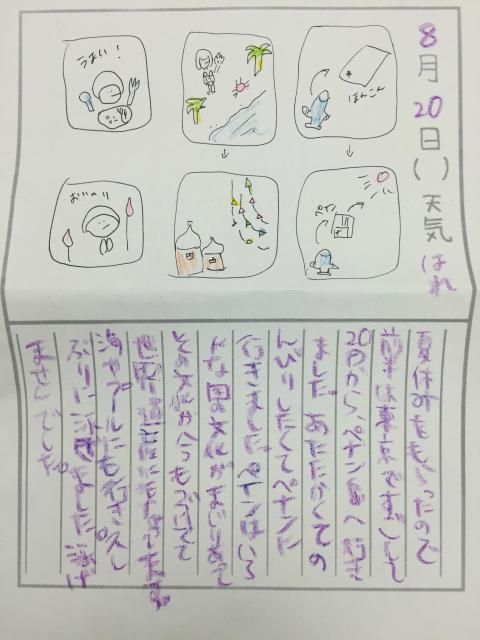 8月20日( ) 天気 はれ
ほんこん
ペナン
うまい!
おいのり
夏休みをもらったので
前半は東京ですごして
20日から、ペナン島へ行き
ました。あたたかくての
んびりしたくてペナンに
行きました。ペナンはいろ
んな国の文化がまじりあって
その文化が
世界遺産に
海やプールにも行き、久し
ぶりに泳ぎました。泳げ
まさんでした。